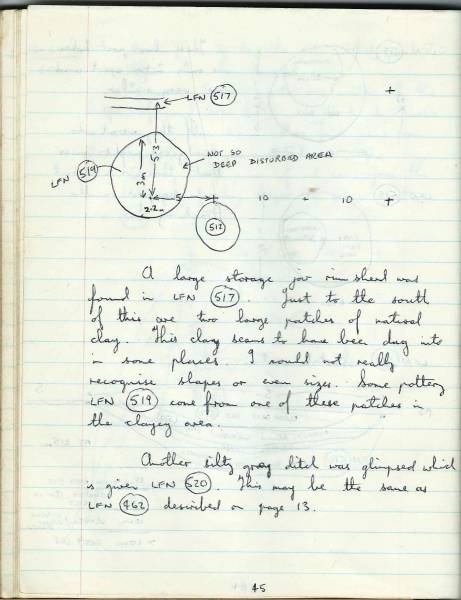 LFN 517
+
LFN 519
5.3
3m
NOT SO
DEEP DISTURBED AREA
5
10
10
+
2.2m
512
A large storage jar rim sherd was
found in LFN 517. Just to the south
of this are two large patches of natural
clay. This clay seems to have been dug into
in some places. I could not really
recognise shapes or even sizes. Some pottery
LFN 519 come from one of these patches in
the clayey area.
Another silty grey ditch was glimpsed which
is given LFN 520. This may be the same as
LFN 462 described on page 13.
45